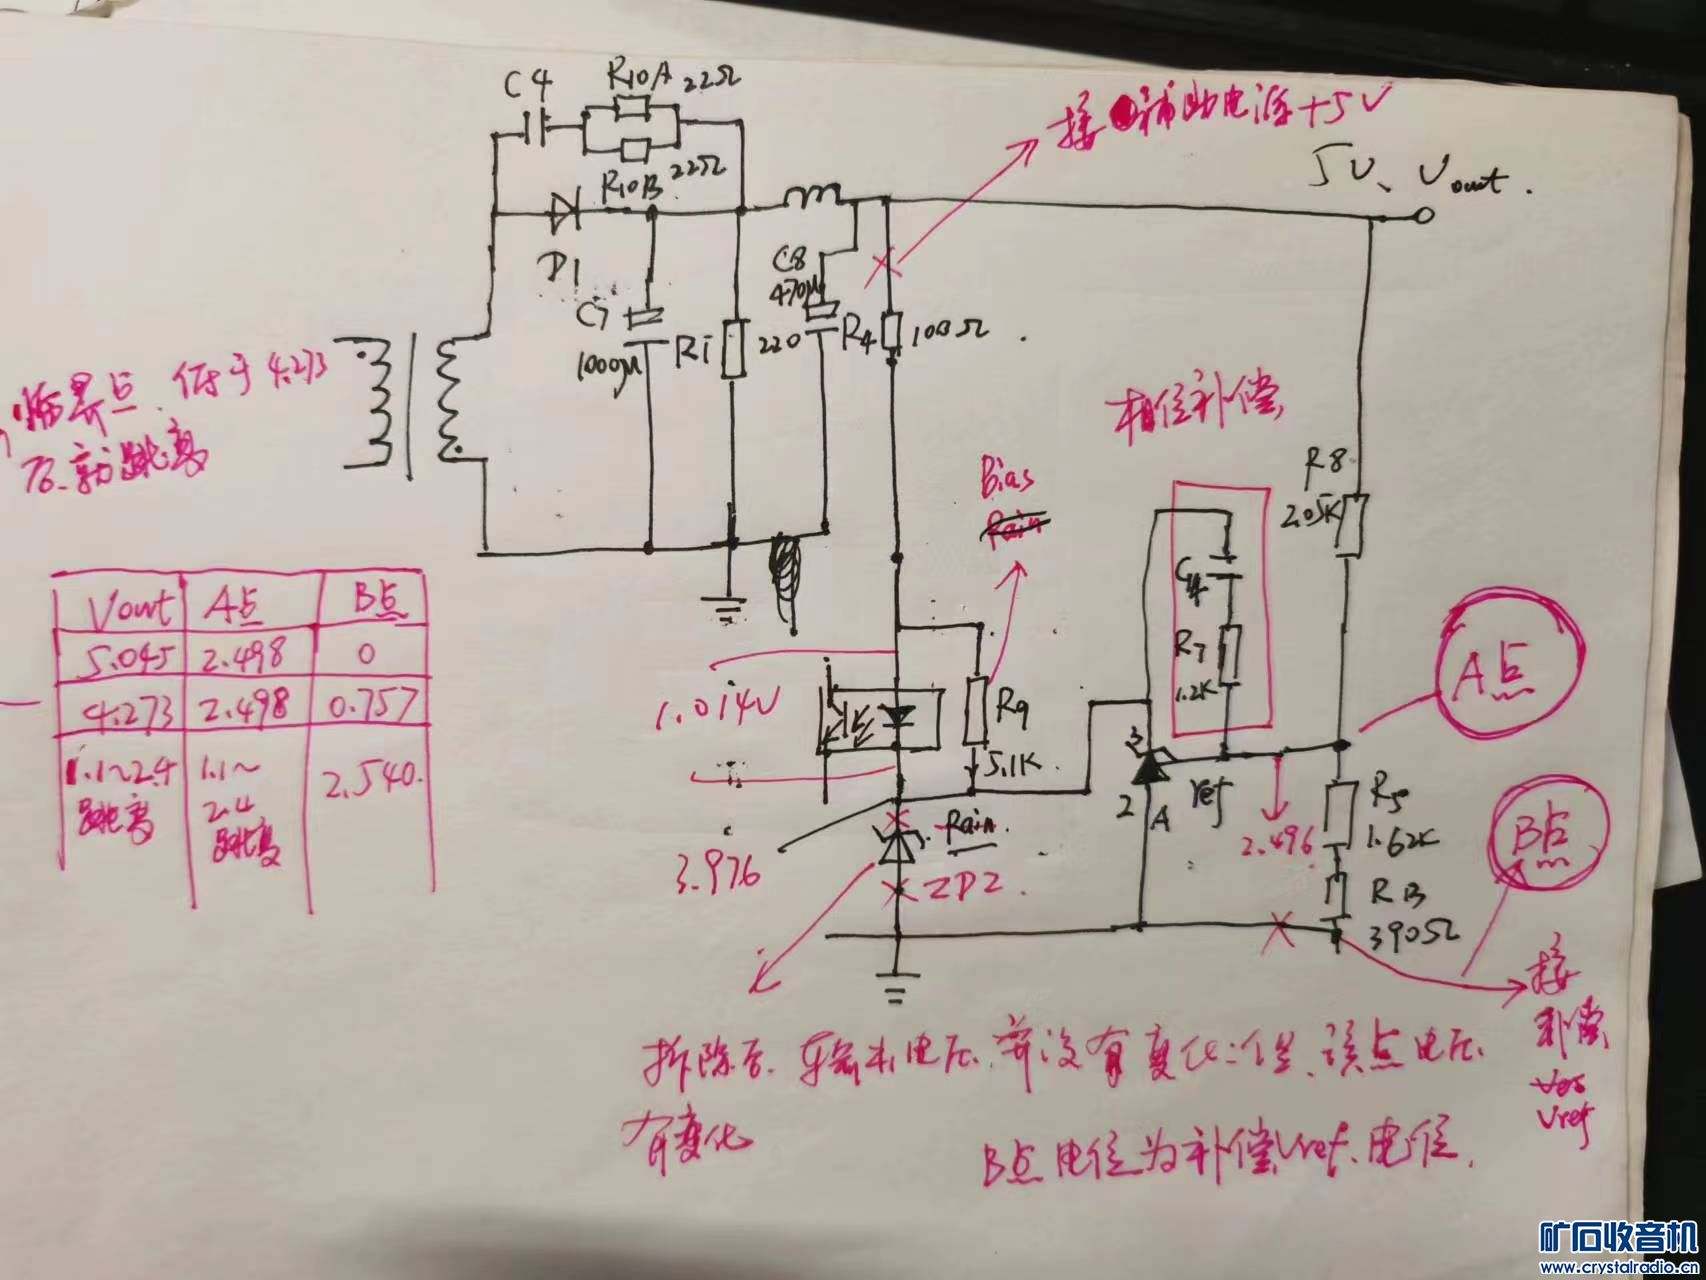 C4
R10A 22Ω
R10B 22Ω
接 补助电源+5V
5V、Vout.
D1
C7
1000μ
R1
220
C8
470μ
R4
100Ω
临界点、低于4.273
后、就跳离
相位补偿
Bias
R8
2.05K
C14
R7
1.2K
Vout A点 B点
5.045 2.498 0
4.273 2.498 0.757
1.1~2.4 1.1~ 2.540.
跳离 2.4
跳离
1.014V
R9
5.1K
3
2 A ref
A点
3.976
ZD2.
2.496
R5
1.62K
R13
390Ω
B点
接
补偿
Vref
拆除后、输出电压、并没有变化、但、该点电压、
有变化
B点电位为补偿Vref、电位、
矿石收音机
www.crystalradio.cn